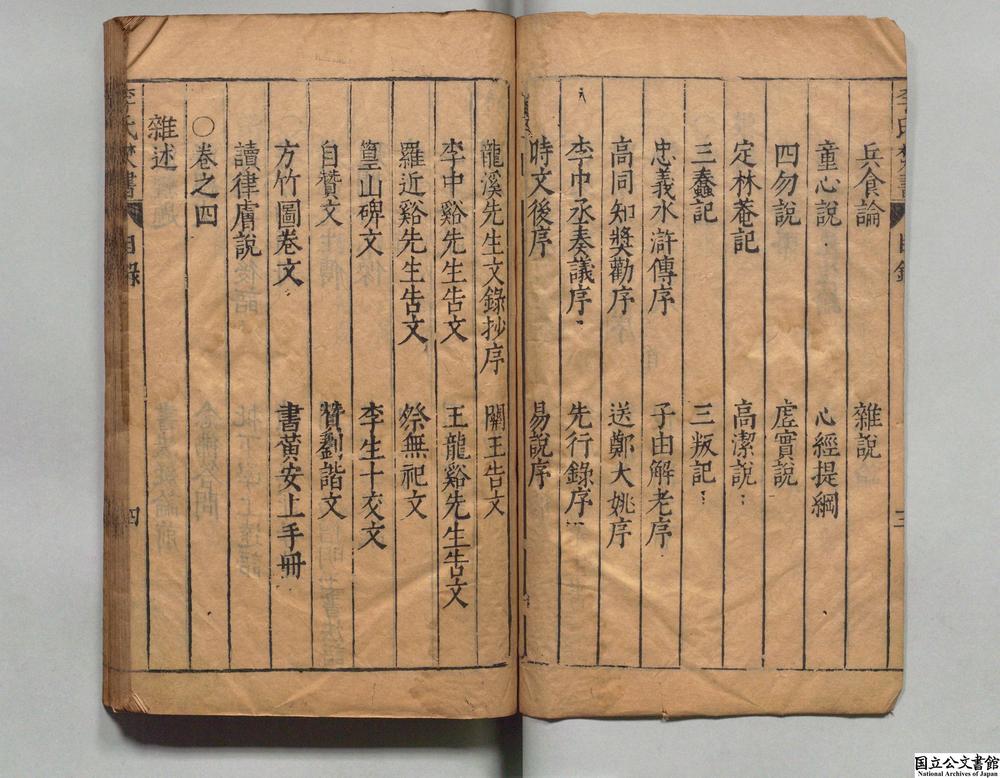 兵食論　雜說
童心說　心經提綱
四勿說　虛實說
定林菴記　高潔說
三蠢記　三叛記
忠義水滸傳序　子由解老序
高同知獎勸序　送鄭大姚序
李中丞奏議序　先行錄序
時文後序　易說序
龍溪先生文錄抄序　關王告文
李中谿先生告文　王龍谿先生告文
羅近谿先生告文　祭無祀文
篁山碑文　李生十交文
自贊文　贊劉諧文
方竹圖卷文　書黃安上手冊
讀律膚說
〇卷之四
雜述
李氏焚書　目錄　三
李氏焚書　目錄　四
国立公文書館
National Archives of Japan